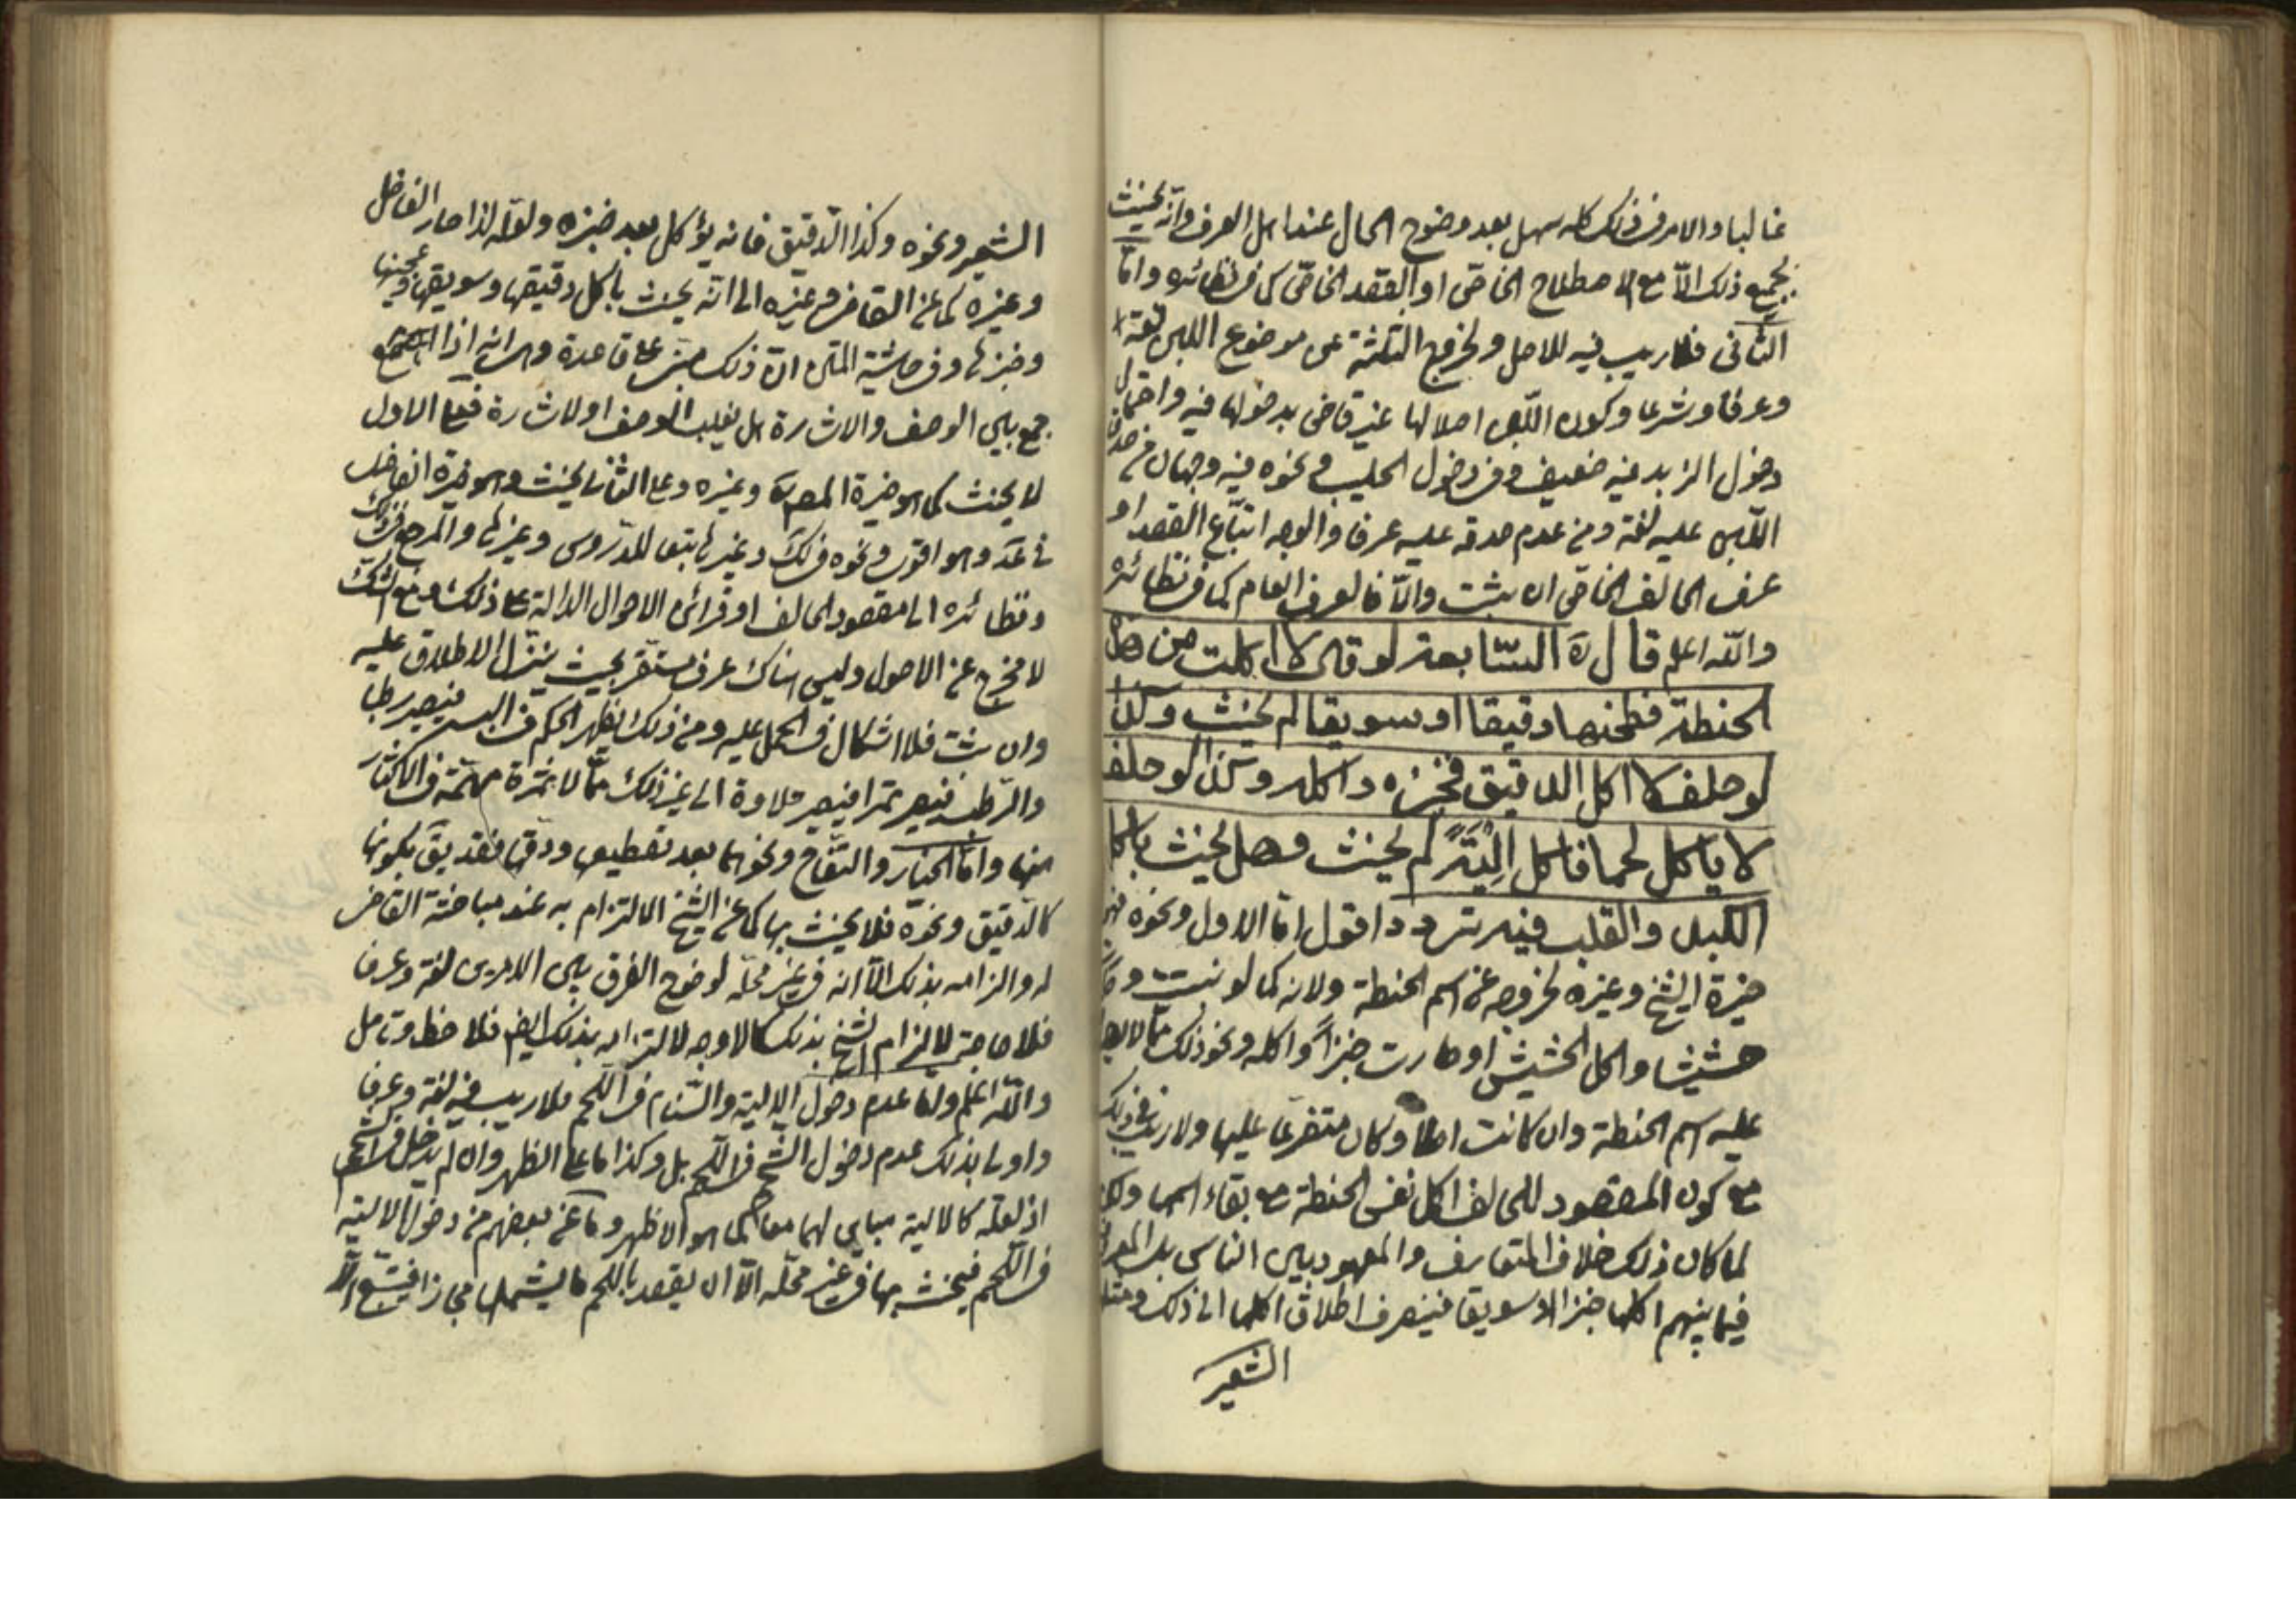 غالبا والامر في ذلك كله سهل بعد وضوح الحال عند اهل العرف وانه يحنث
بجميع ذلك الّا مع الاصطلاح الخاص او القصد الخاص كما في نظائره وامّا
الثاني فلا ريب فيه للاصل ولخروج الثلثة عن موضوع اللبن لغة
وعرفا وشرعا وكون اللبن اصلا لها غير قاض بدخولها فيه واحتمال
دخول الزبد فيه ضعيف وفي دخول الحليب ونحوه فيه وجهان من صدق
اللبن عليه لغة ومن عدم صدقه عليه عرفا والوجه اتباع القصد او
عرف الحالف الخاص ان ثبت والّا فالعرف العام كما في نظائره
والله اعلم قال ره السّابعة لو قال لا اكلت من هذه
الحنطة فطحنها دقيقا او سويقا لم يحنث وكذا
لو حلف لا اكل الدقيق فخبزه واكله وكذا لو حلف
لا ياكل لحما فاكل اِليَةً لم يحنث وهل يحنث باكل
الكبد والقلب فيه تردد اقول امّا الاول ونحوه فهو
خيرة الشيخ وغيره لخروجه عن اسم الحنطة ولانه كما لو نبتت
حشيشا واكل الحشيش او صارت خبزاً واكله ونحو ذلك ممّا لا
عليه اسم الحنطة وان كانت اصلا وكان متفرعا عليها ولا ريب في ذلك
مع كون المقصود للحالف اكل نفس الحنطة مع بقاء اسمها ولكن
لما كان ذلك خلاف المتعارف والمعهود بين الناس بل المعروف
فيما بينهم اكلها خبزا او سويقا فينصرف اطلاق اكلها الى ذلك ومثله
الشعير
الشعير ونحوه وكذا الدقيق فانه يؤكل بعد خبزه ولعله لذا صار الفاضل
وغيره كما عن القاضي وغيره الى انّه يحنث باكل دقيقها وسويقها وعجينها
وخبزها وفي حاشية المتن انّ ذلك مبني على قاعدة وهي انه اذا اجتمع
جمع بين الوصف والاشارة هل يغلب الوصف او الاشارة فعلى الاول
لا يحنث كما هو خيرة المصنّف وغيره وعلى الثاني يحنث وهو خيرة الفاضل
في عد وهو اقوى ونحوه في لك وغيرها تبعا للدروس وغيرها والمرجع في ذلك
ونظائره الى مقصود الحالف او قرائن الاحوال الدالة على ذلك ومع الشك
لا مخرج عن الاصول وليس هناك عرف مستقر بحيث ينزل الاطلاق عليه
وان ثبت فلا اشكال في الحمل عليه ومن ذلك يظهر الحكم في البسر فيصير رطبا
والرطب فيصير تمرا فيصير حلاوة الى غير ذلك ممّا لا ثمرة مهمّة في الاكثار
منها وامّا الخيار والتفاح ونحوهما بعد تقطيعها ودقها فقد يق بكونها
كالدقيق ونحوه فلا يحنث بها كما عن الشيخ الالتزام به عند مباحثة القاضي
له والزامه بذلك الّا انه في غير محلّه لوضوح الفرق بين الامرين لغة وعرفا
فلا حاجة لالزام الشيخ بذلك كما لا وجه لالتزامه بذلك ايضا فلاحظ وتامل
والله اعلم وامّا عدم دخول الالية والسنام في اللحم فلا ريب فيه لغة وعرفا
واولى بذلك عدم دخول الشحم في اللحم بل وكذا ما على الظهر وان لم يدخل في الشحم
اذ لعله كالالية مباين لهما معا كما هو الاظهر وما عن بعضهم من دخول الالية
في اللحم فيحنث بها في غير محلّه الّا ان يقصد باللحم ما يشملها مجازا فيتّبع الّا